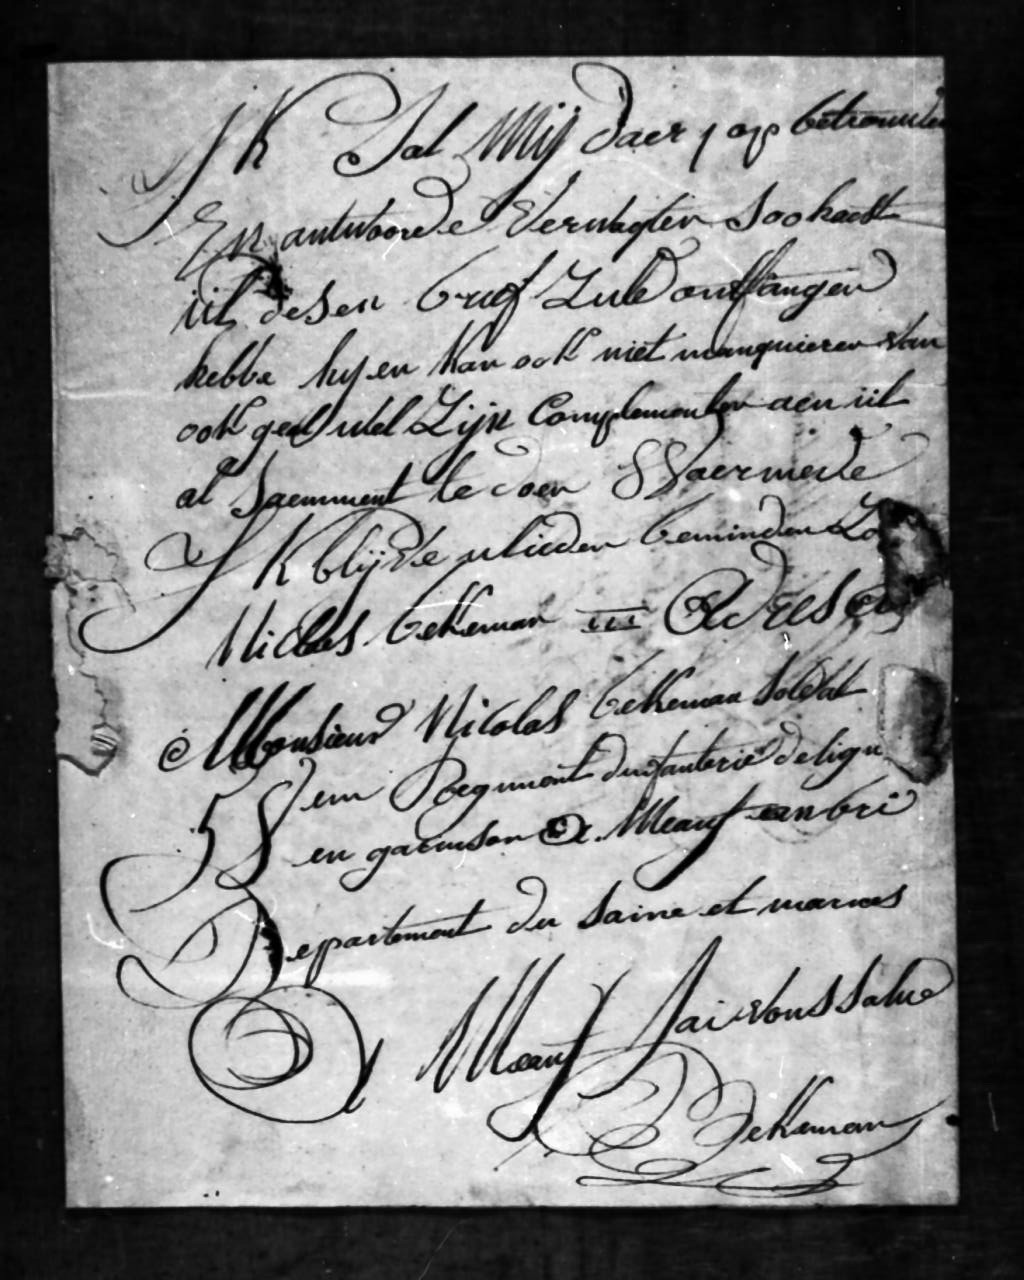 Ik Sal Mij daer op betrouwden
En antwoorde Verwagten Soo haest
ul desen brief Zule ontfangen
hebbe hij en Kan ook niet manquieren Van
ook gedudel Zijn Complementen aen ul
al Saemment te doen Waermede
Ik blijve ulieden beminden Zo
Nicolas beKeman Adres a
Monsieur Nicolas beKeman Soldat
58 em Regiment dinfanterie de lign
en garnison a Meauf en bri
Departement du Saine et marnes
a Meauf Jai Vous Salue
BeKeman